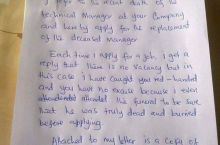 I refer to the recent death of the
Technical Manager at your Company
and hereby apply for the replacement
of the deceased manager
Each time I apply for a job, i get a
reply that there is no vacancy but in
this case I have caught you red-handed
and you have no excuse because i even
attended the funeral to be sure
that he was truly dead and buried
before applying.
Attached to my letter is a copy of